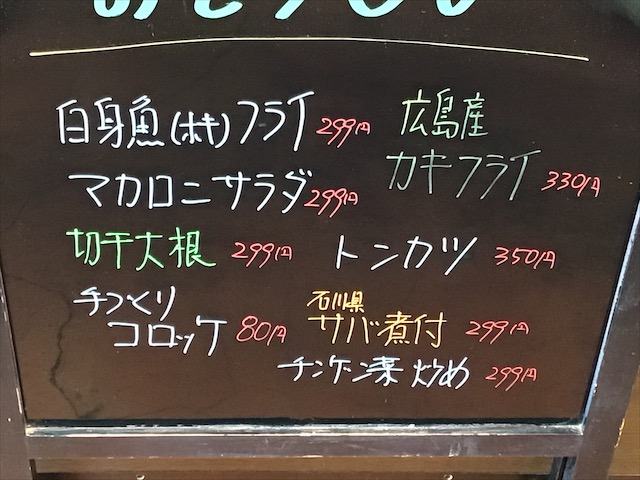 白身魚(ホキ)フライ 299円
マカロニサラダ 299円
切干大根 299円
手づくり
コロッケ 80円
広島産
カキフライ 330円
トンカツ 350円
石川県
サバ煮付 299円
チンゲン菜炒め 299円